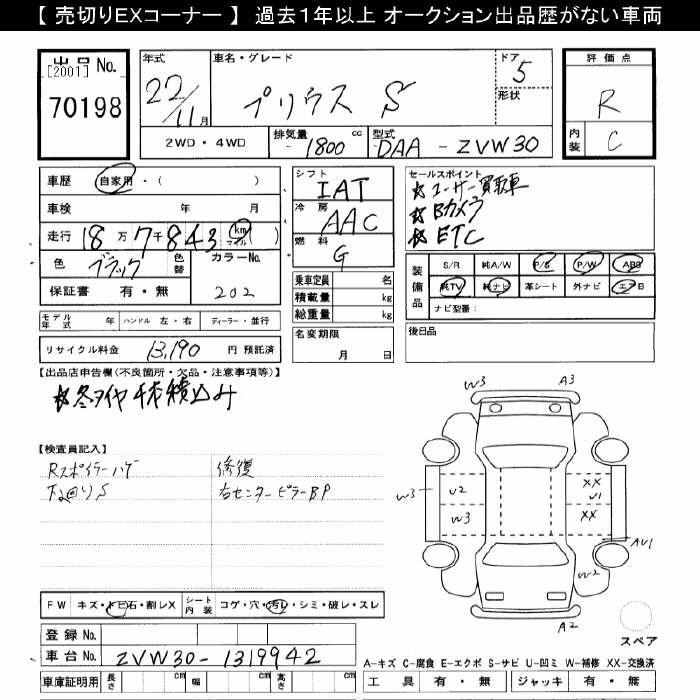 【 売切りEXコーナー 】 過去1年以上 オークション出品歴がない車両
出品 No.
[2001]
70198
年式
22/11月
車名・グレード
プリウス S
ドア
5
形状
評価点
R
内装
C
2WD・4WD
排気量
1800 cc
型式
DAA-ZVW30
車歴 自家用・( )
車検 年 月
走行 18万7千843 km マイル ( )
色 ブラック
色替
カラーNo.
202
保証書 有・無
モデル年式 年 ハンドル 左・右 ディーラー・並行
リサイクル料金 13,190 円 預託済
シフト
IAT
冷房
AAC
燃料
G
乗車定員 名
積載量 kg
総重量 kg
名変期限
月 日
セールスポイント
★ユーザー買取車
★Bカメラ
★ETC
装備品
S/R 純A/W P/S P/W ABS
純TV 純ナビ 革シート 外ナビ エアB
ナビ型番:
後日品
【出品店申告欄(不良箇所・欠品・注意事項等)】
★冬タイヤ4本積込み
【検査員記入】
Rスポイラーハゲ
下回りS
修復
右センターピラーBP
W3
A3
W3
U2
W3
XX
U1
XX
AU1
W2
A2
スペア
FW キズ・トビ石・割レX
シート内装 コゲ・穴・汚レ・シミ・破レ・スレ
登録 No.
車台 No. ZVW30-1319942
車庫証明用 長さ cm 幅 cm 高さ cm
A-キズ C-腐食 E-エクボ S-サビ U-凹ミ W-補修 XX-交換済
工具 有・無 ジャッキ 有・無